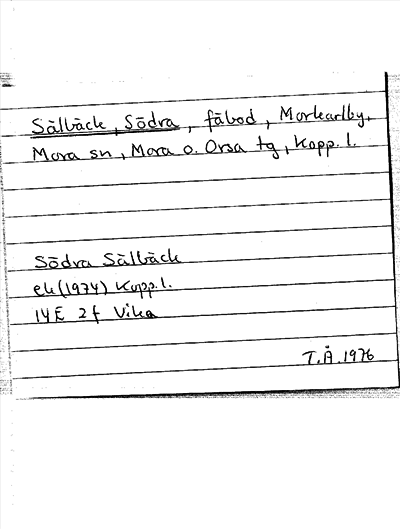 Sälbäck, Södra, fäbod, Morkarlby,
Mora sn, Mora o. Orsa tg, Kopp. l.
Södra Sälbäck
ek (1974) Kopp. l.
14E 2f Vika
T.Å. 1976